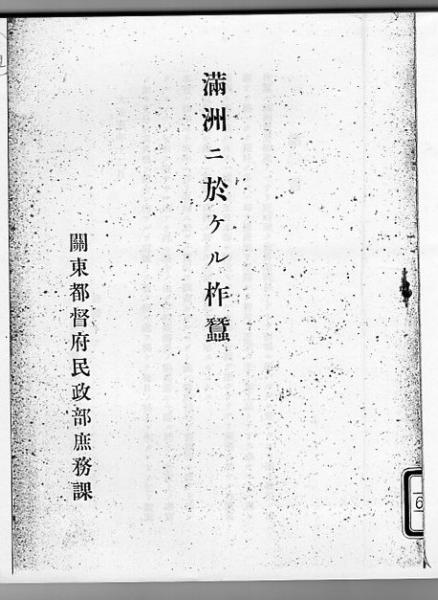 滿洲ニ於ケル柞蠶
關東都督府民政部庶務課
6